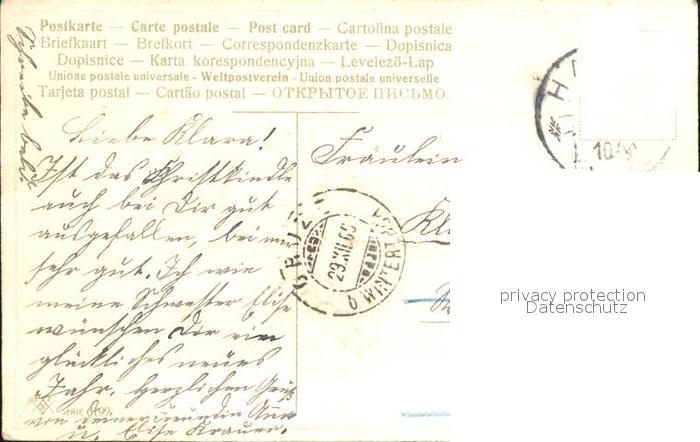 Postkarte — Carte postale — Post card — Cartolina postale
Briefkaart — Brefkort — Correspondenzkarte — Dopisnica
Dopisnice — Karta korespondencyjna — Levelező-Lap
Unione postale universale - Weltpostverein - Union postale universelle
Tarjeta postal — Cartão postal — ОТКРЫТОЕ ПИСЬМО.
Schreibe bald!
Liebe Klara!
Ist das Christkindle
auch bei Dir gut
ausgefallen, bei mir
sehr gut. Ich wie
meine Schwester Elise
wünschen Dir ein
glückliches neues
Jahr. Herzlichen Gruß
von deiner Freundin Anna
u. Elise Krauer.
SERIE
Fräulein
Kl
WINTERT
29.XII.
10
privacy protection
Datenschutz